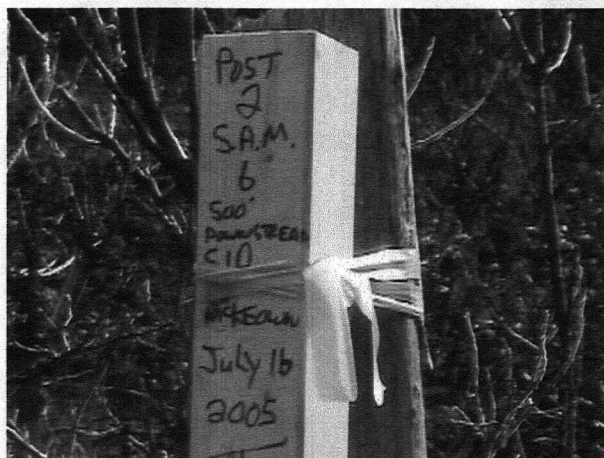 POST
2
S.A.M.
6
500'
DOWNSTREAM
C10
McKEOWN
July 16
2005